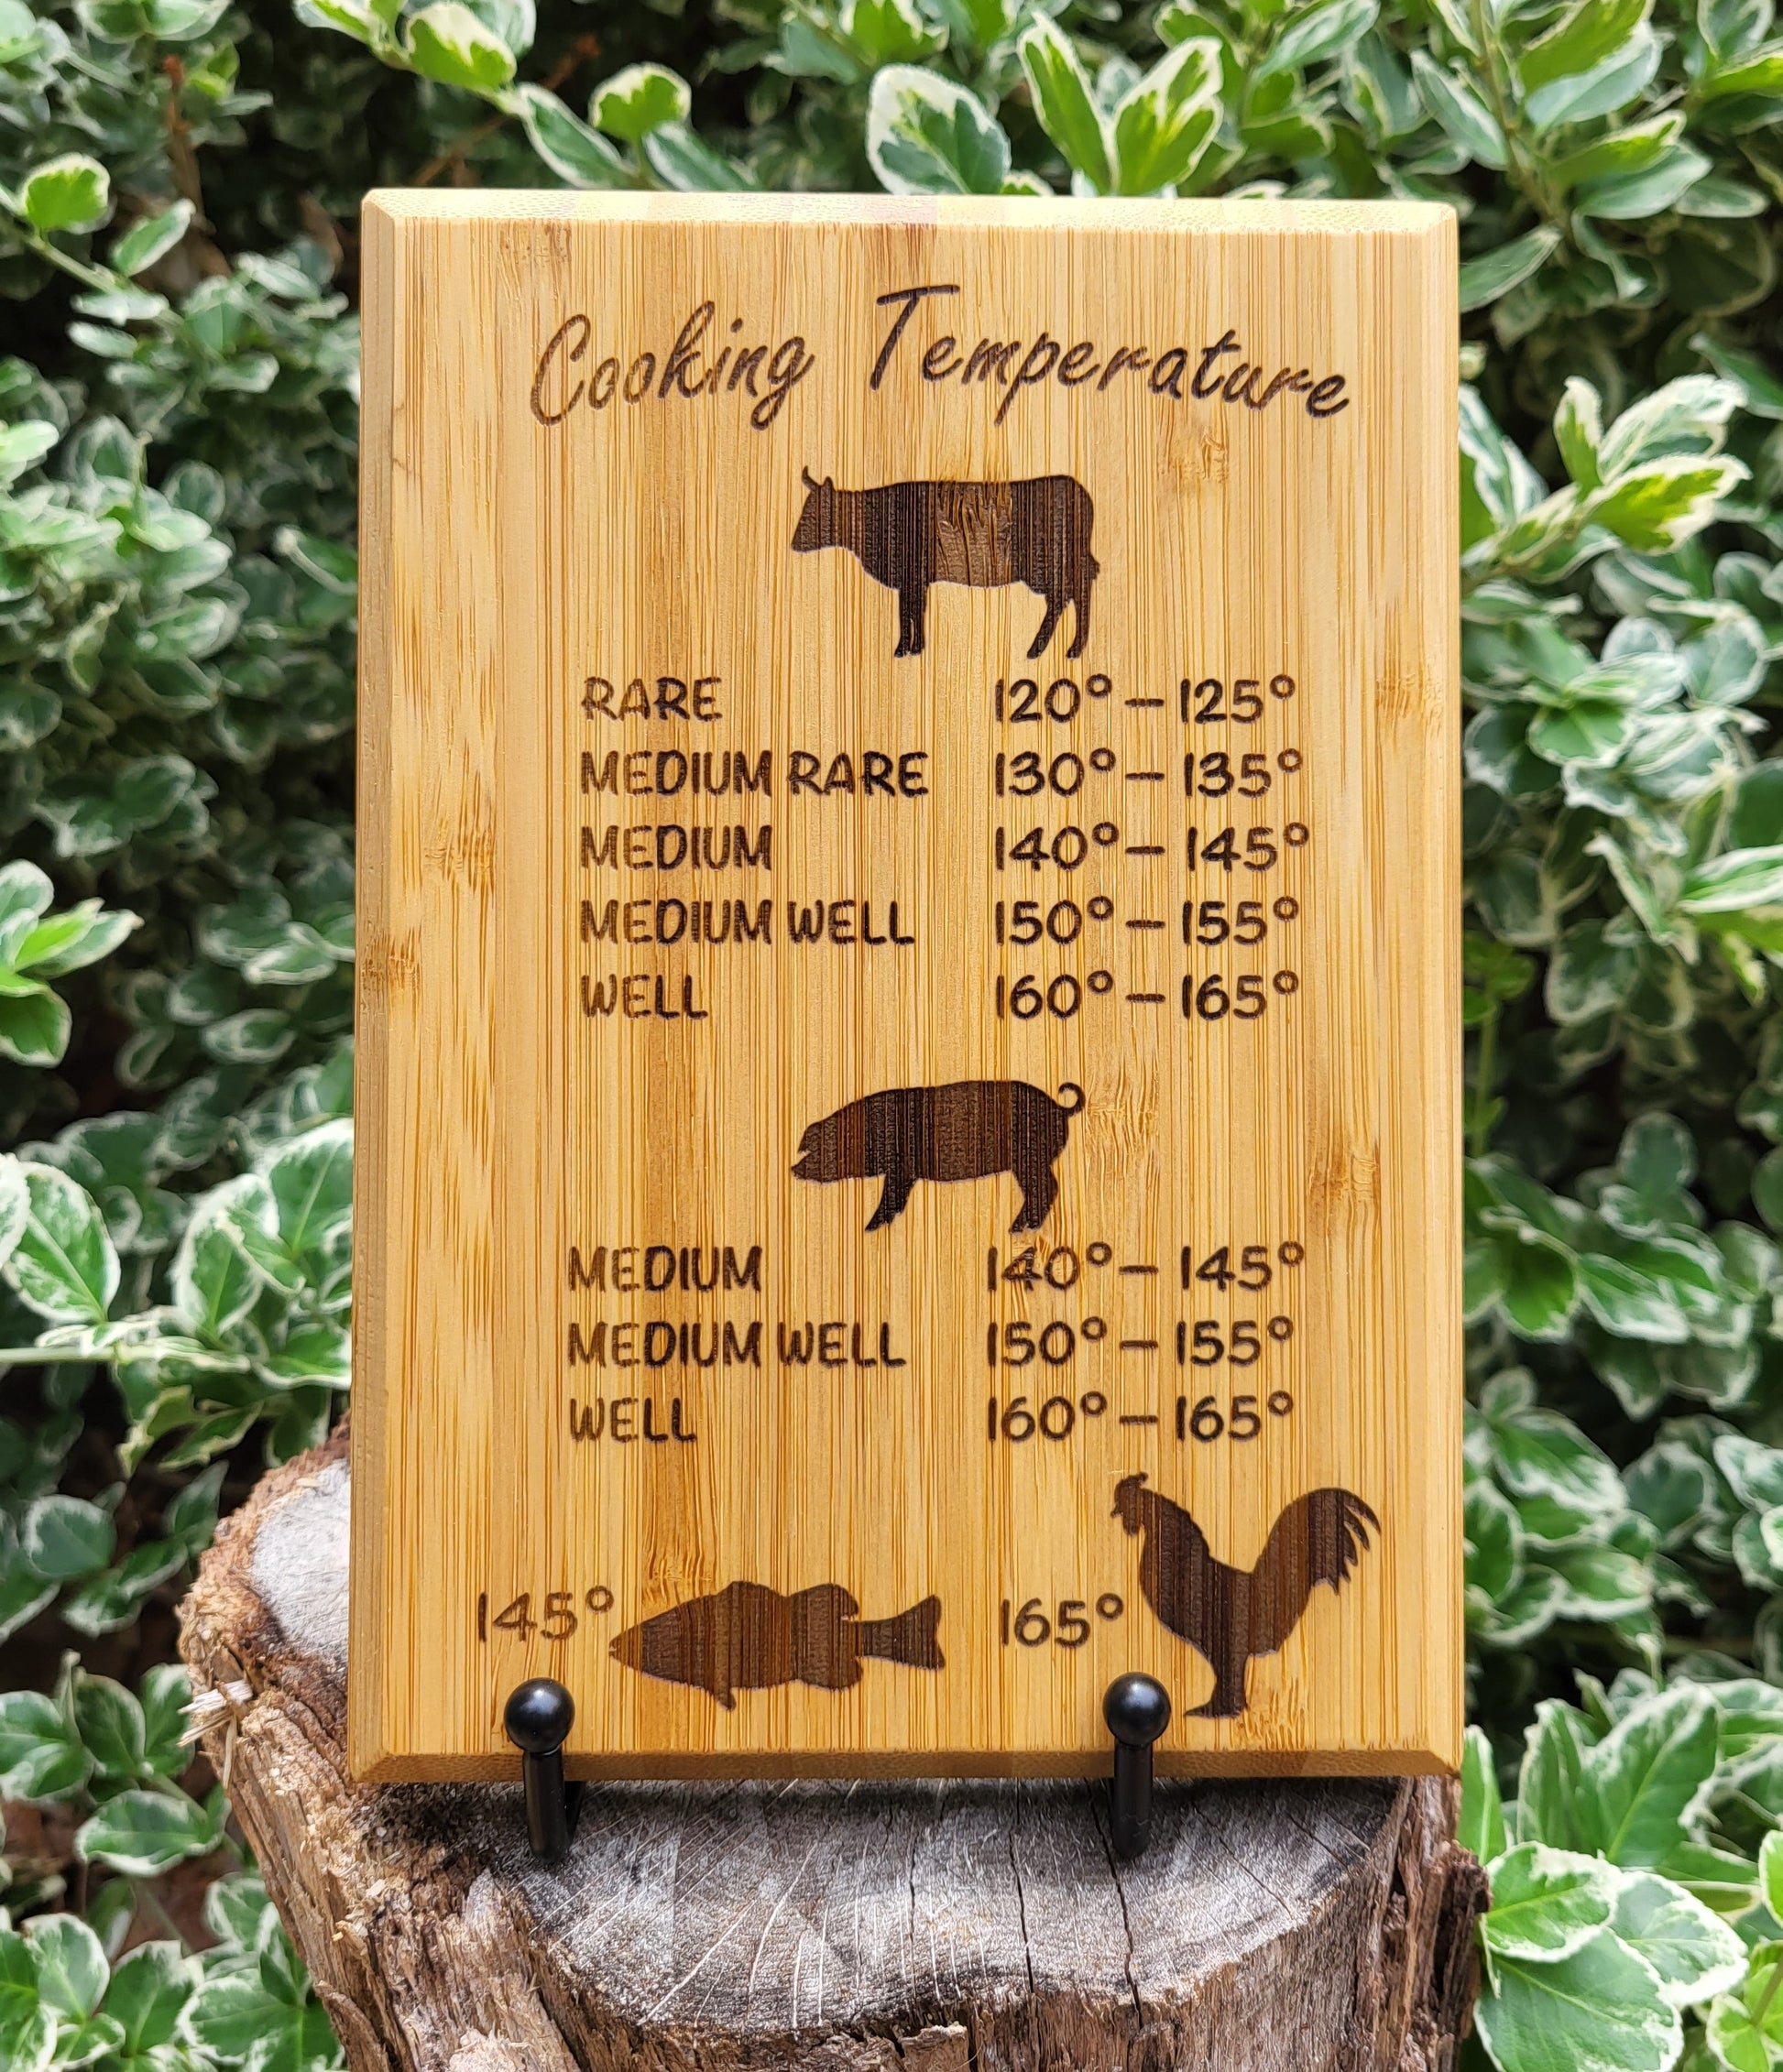 Cooking Temperature
RARE 120° – 125°
MEDIUM RARE 130° – 135°
MEDIUM 140° – 145°
MEDIUM WELL 150° – 155°
WELL 160° – 165°
MEDIUM 140° – 145°
MEDIUM WELL 150° – 155°
WELL 160° – 165°
145° 165°